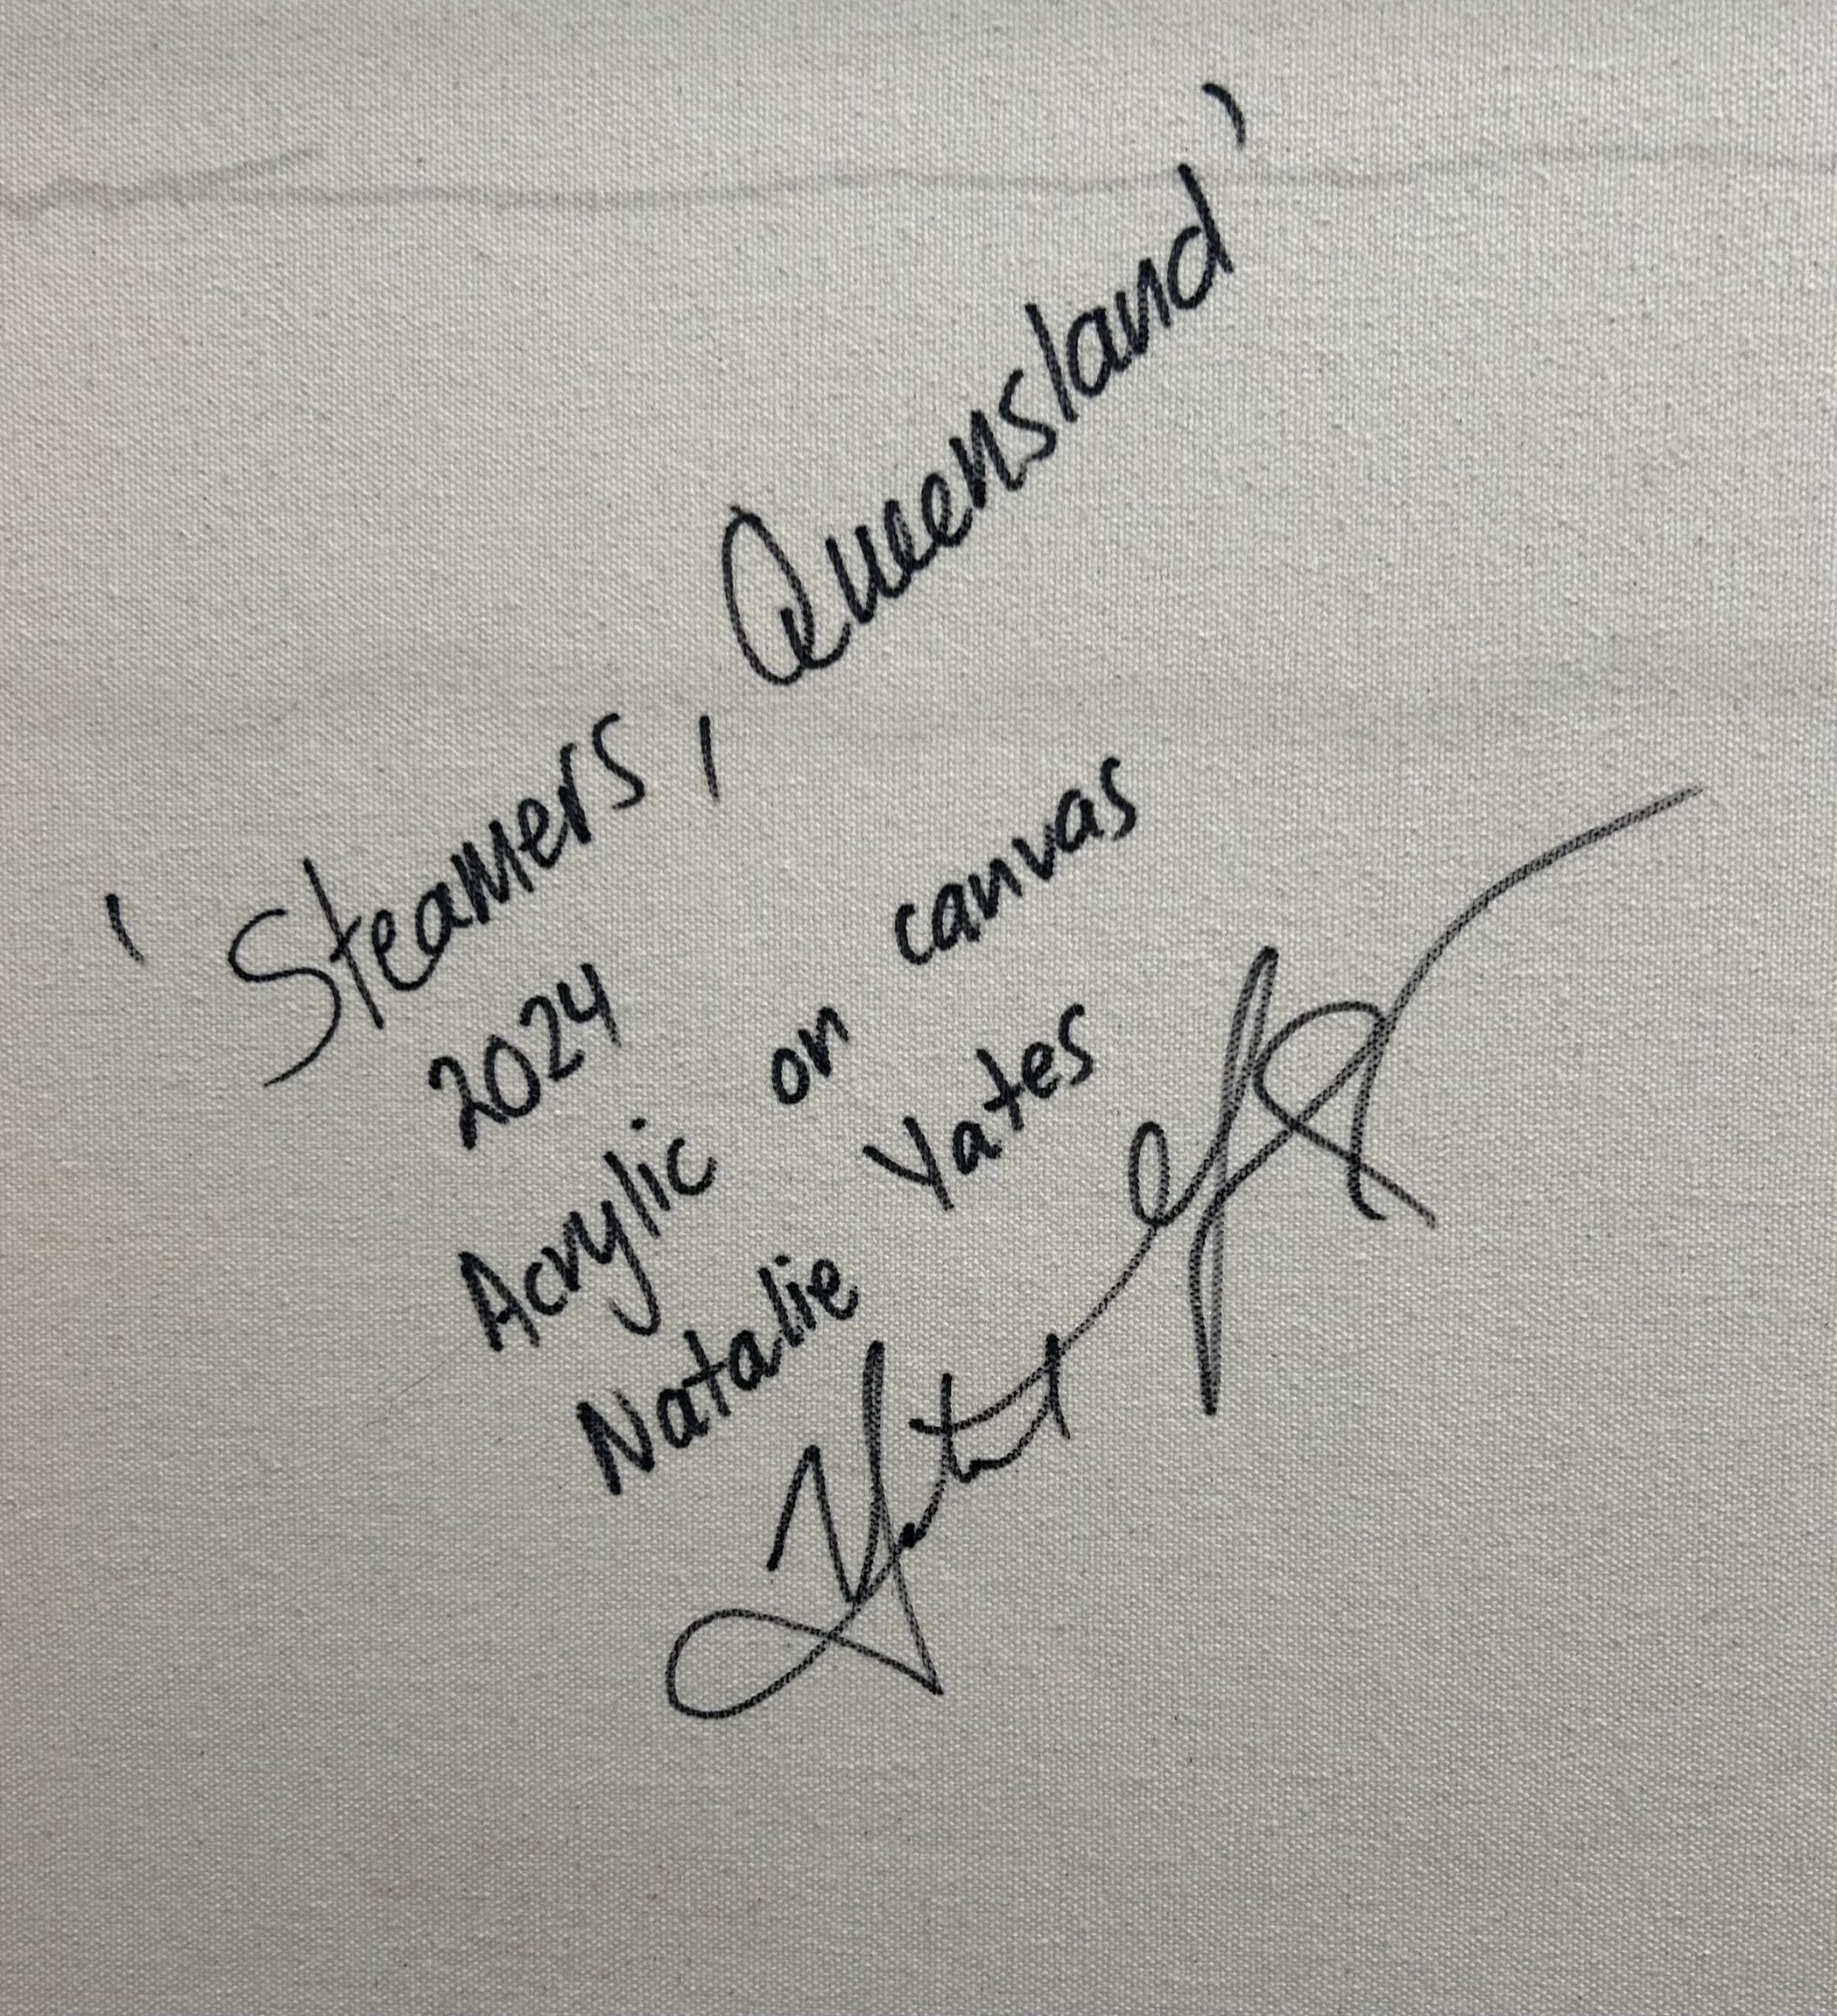 'Steamers, Queensland'
2024
Acrylic on canvas
Natalie Yates